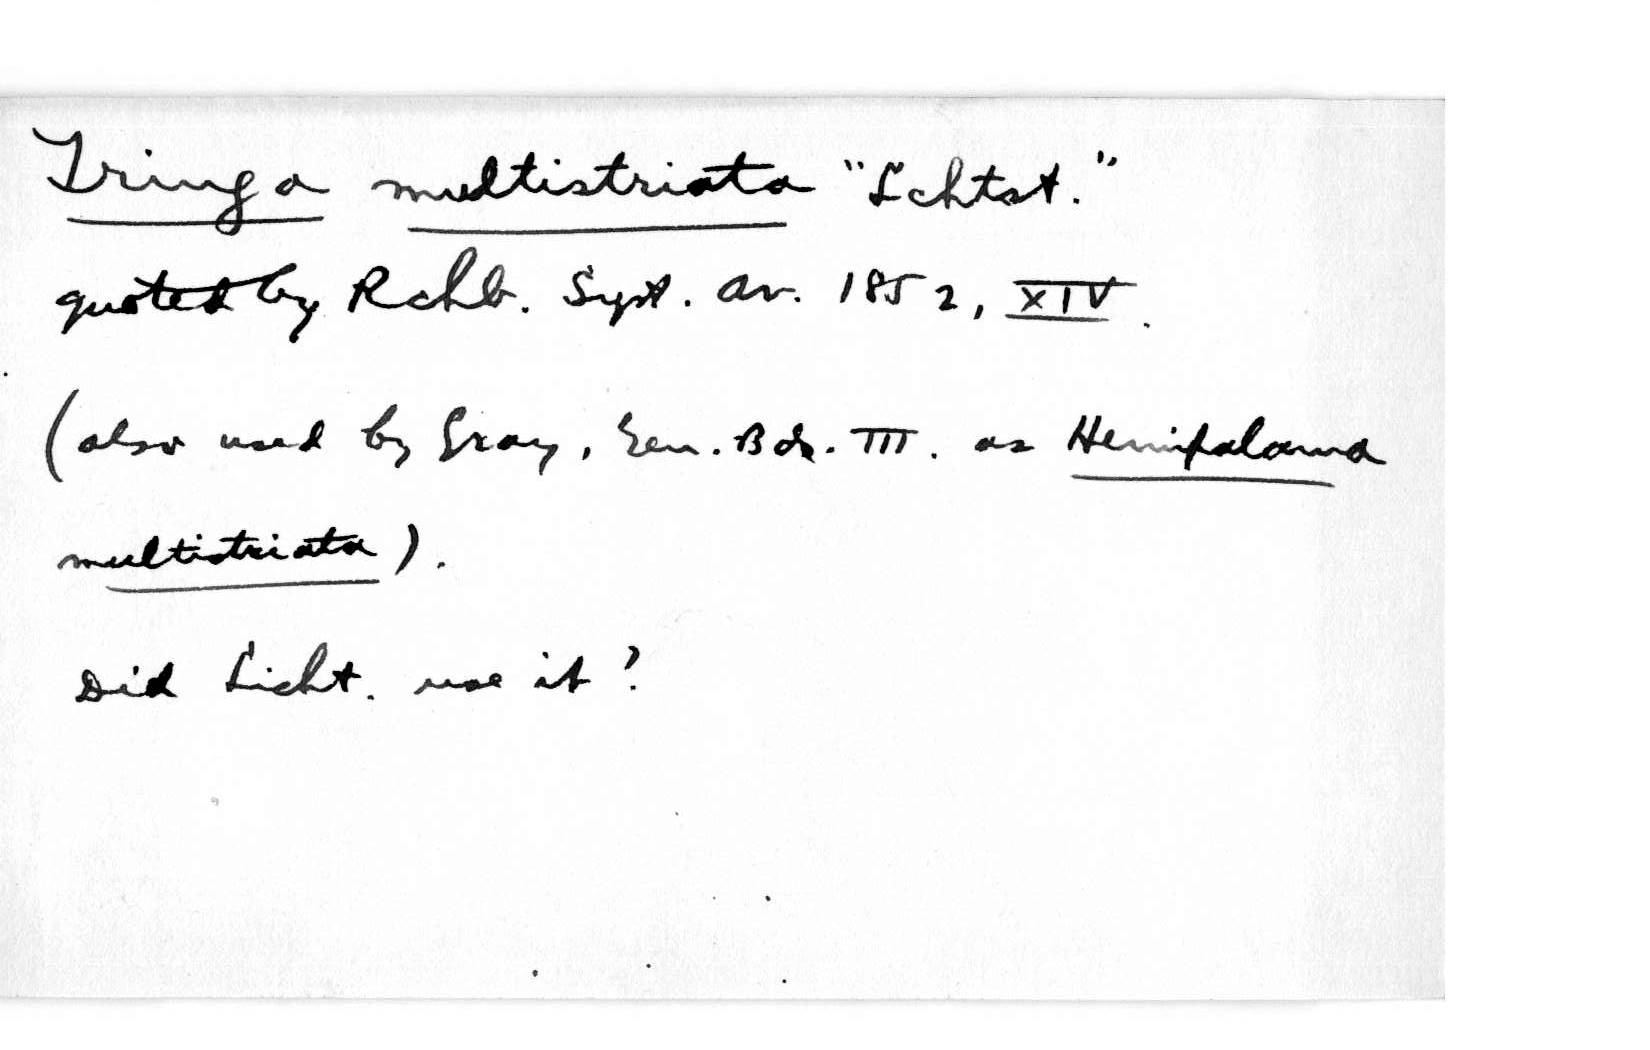 Tringa multistriata "Lchtst."
quoted by Rchb. Syst. Av. 1852, XIV.
(also used by Gray, Gen. Bds. III. as Hemipalama
multistriata).
Did Licht. use it?